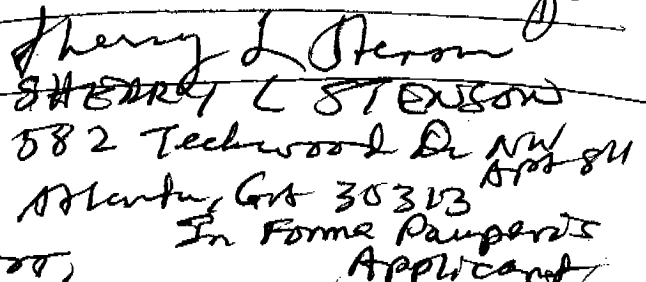 Sherry L Stenson
SHERRY L STENSON
582 Techwood Dr NW
Apt 811
Atlanta, GA 30313
In Forma Pauperis
Applicant,